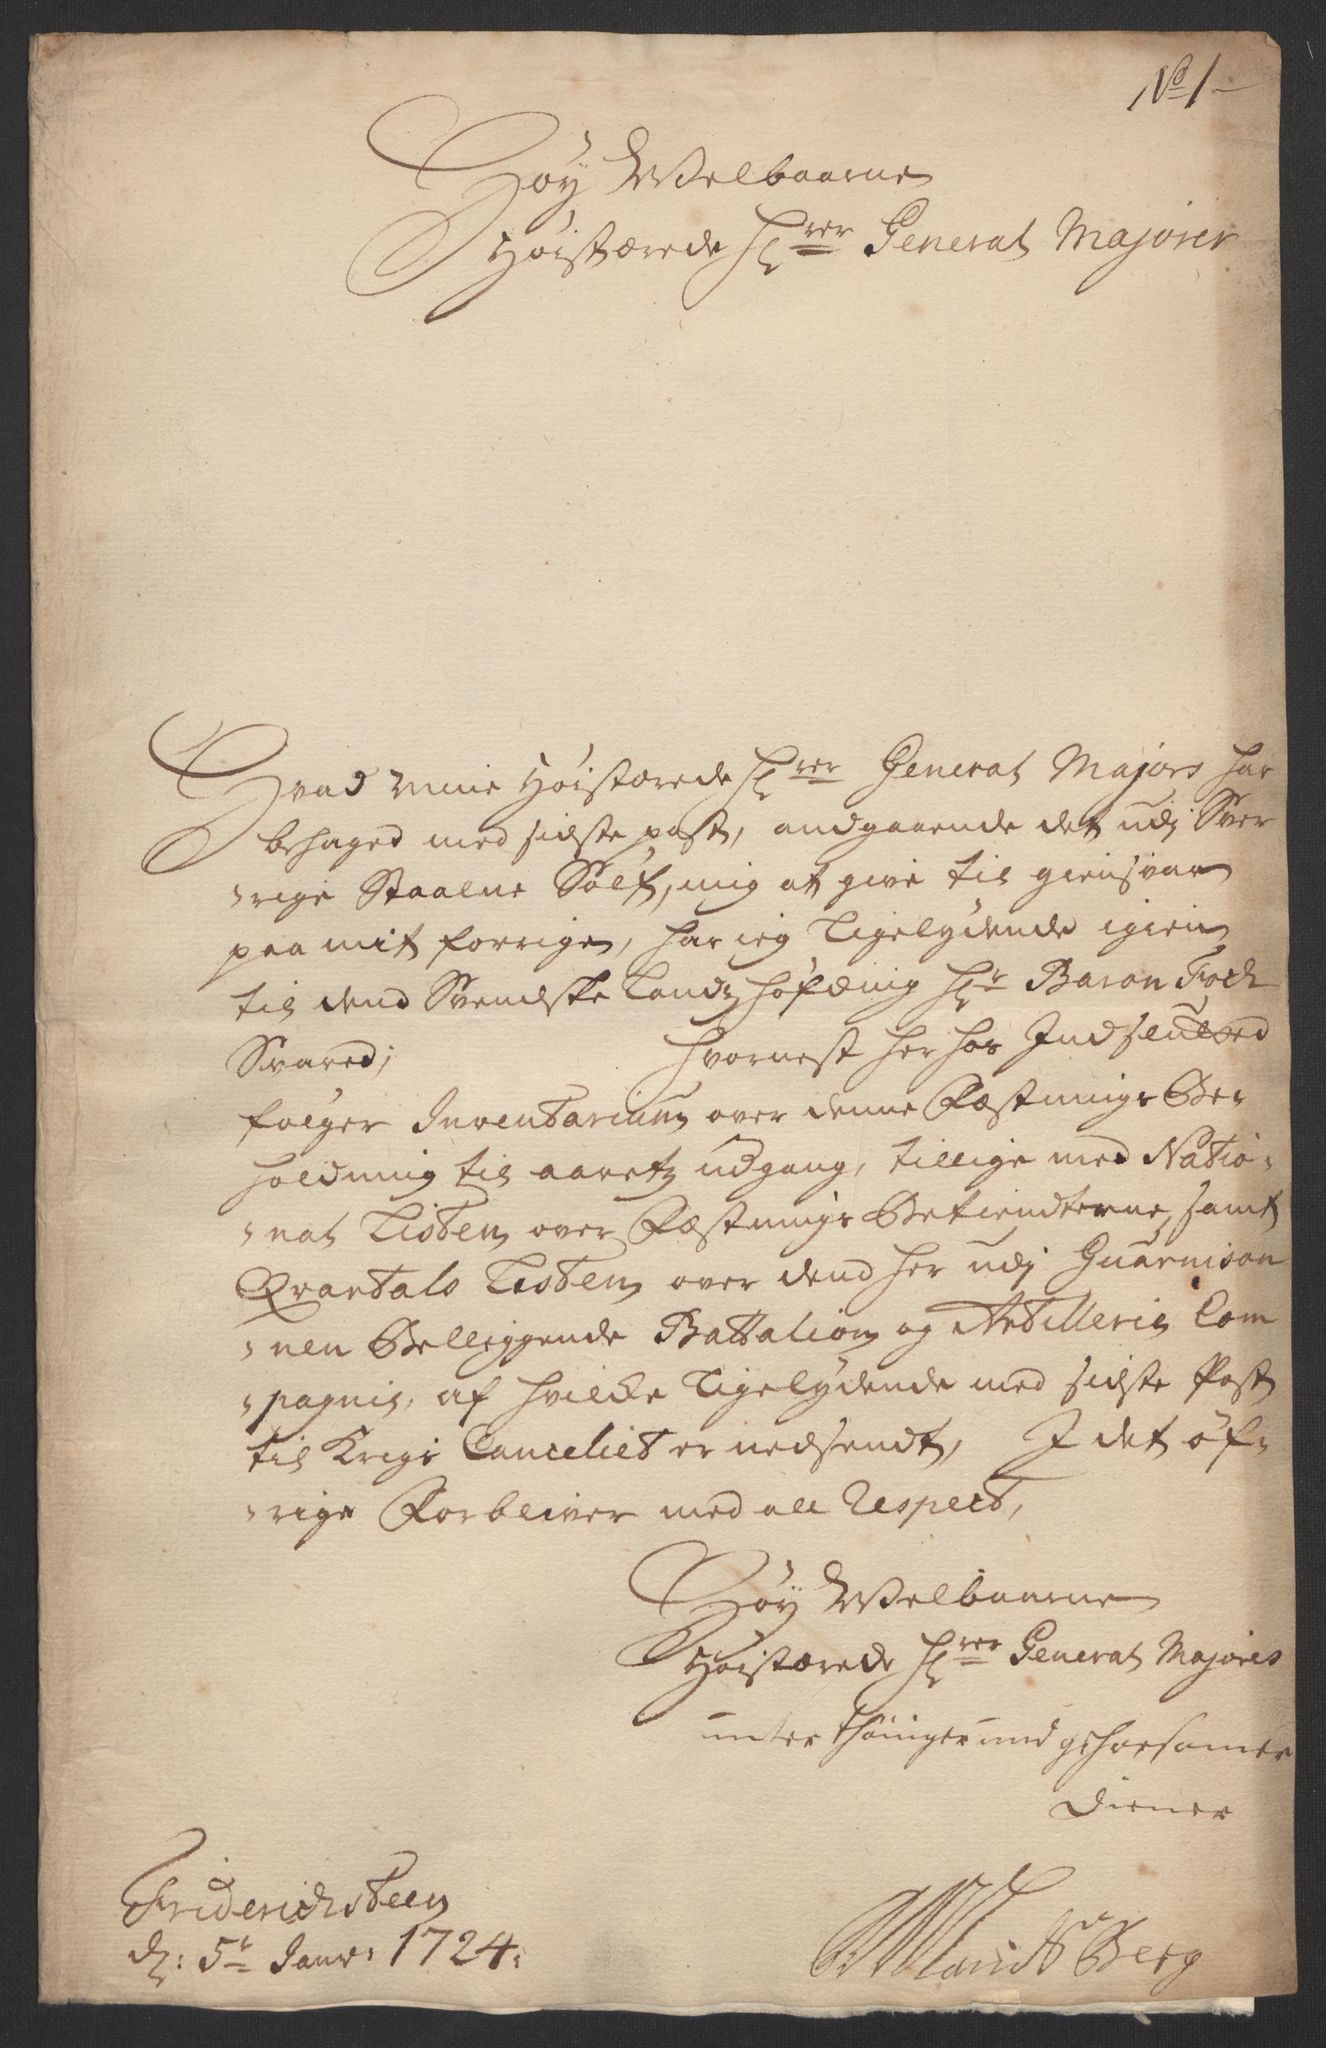 No 1
Høy Welbaarne
Høistærede Hrer General Majorer
Hvad mine Høistærede Hrer General Majors har
behaged med sidste post, andgaaende det udj Sver
rige Staalne Sølf, mig at give til giensvar
paa mit forrige, har ieg Ligelydende igien
til dend Svendske Landshøfding Hr Baron
Svared; hvornest her hos Indslutted
følger Inventarium over denne Fæstnings Be-
holdning til aaretz udgang, tillige med Natio-
nal Listen over Fæstnings Betiendterne, samt
Qvartals Listen over dend her udj Guarnison
nen Beliggende Battalion og Artillerie Com
pagnie, af hvilcke Ligelydende med sidste Post
til Krigs Canceliet er nedsendt, I det øf-
rige Forbliver med all Respect,
Høy Welbaarne
Høistærede Hrer General Majores
unterthäniger und gehorsamer
Diener
Friderichsteen
d: 5te Janv: 1724.
Berg